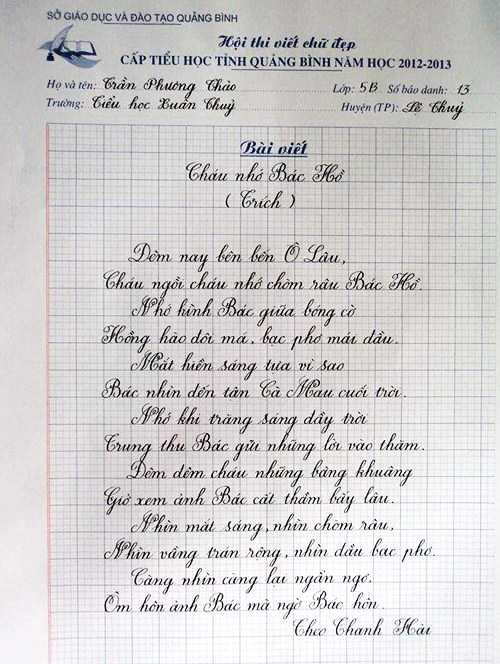 SỞ GIÁO DỤC VÀ ĐÀO TẠO QUẢNG BÌNH
Hội thi viết chữ đẹp
CẤP TIỂU HỌC TỈNH QUẢNG BÌNH NĂM HỌC 2012-2013
Họ và tên: Trần Phương Thảo Lớp: 5B Số báo danh: 13
Trường: Tiểu học Xuân Thuỷ Huyện (TP): Lệ Thuỷ
Bài viết
Cháu nhớ Bác Hồ
( Trích )
Đêm nay bên bến Ô Lâu,
Cháu ngồi cháu nhớ chòm râu Bác Hồ.
Nhớ hình Bác giữa bóng cờ
Hồng hào đôi má, bạc phơ mái đầu.
Mắt hiền sáng tựa vì sao
Bác nhìn đến tận Cà Mau cuối trời.
Nhớ khi trăng sáng đầy trời
Trung thu Bác gửi những lời vào thăm.
Đêm đêm cháu những bâng khuâng
Giở xem ảnh Bác cất thầm bấy lâu.
Nhìn mắt sáng, nhìn chòm râu,
Nhìn vầng trán rộng, nhìn đầu bạc phơ.
Càng nhìn càng lại ngẩn ngơ.
Ôm hôn ảnh Bác mà ngờ Bác hôn.
Theo Thanh Hải